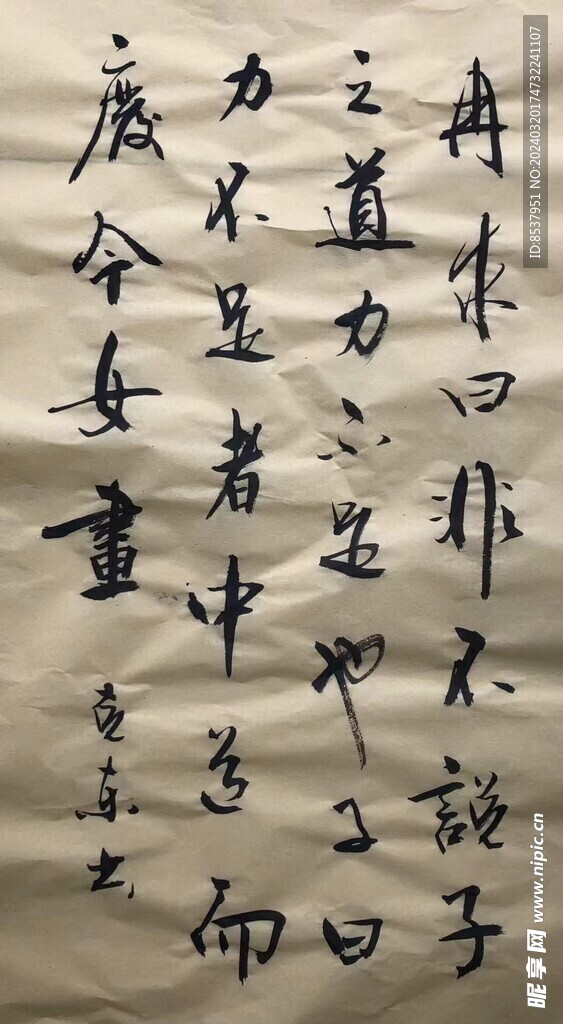 冉求曰非不說子
之道力不足也子曰
力不足者中道而
廢今女畫
克东书
ID:8537951 NO:20240320174732241107
昵享网 www.nipic.cn